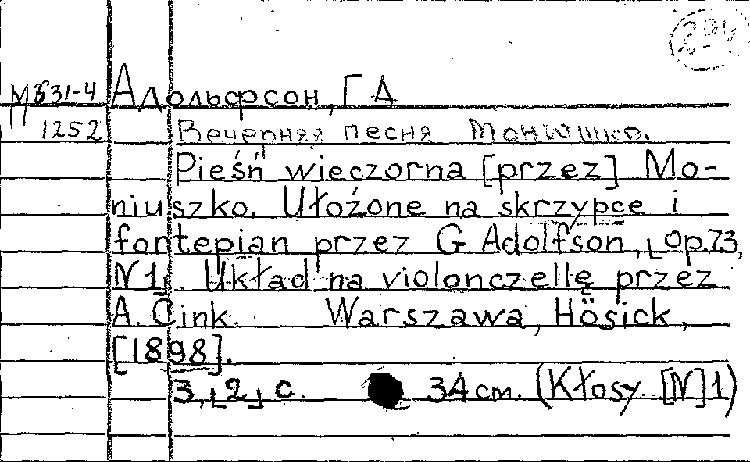 224
М 331-4
1252
Адольфсон, Г А
Вечерняя песня Монюшко.
Pieśń wieczorna [przez] Mo-
niuszko. Ułożone na skrzypce i
fontepian przez G Adolfson, Op.73,
N 1. Układ na violonczellę przez
A. Cink. Warszawa, Hösick,
[1898].
3, [2] с. 34 cm. (Kłosy. [N] 1)